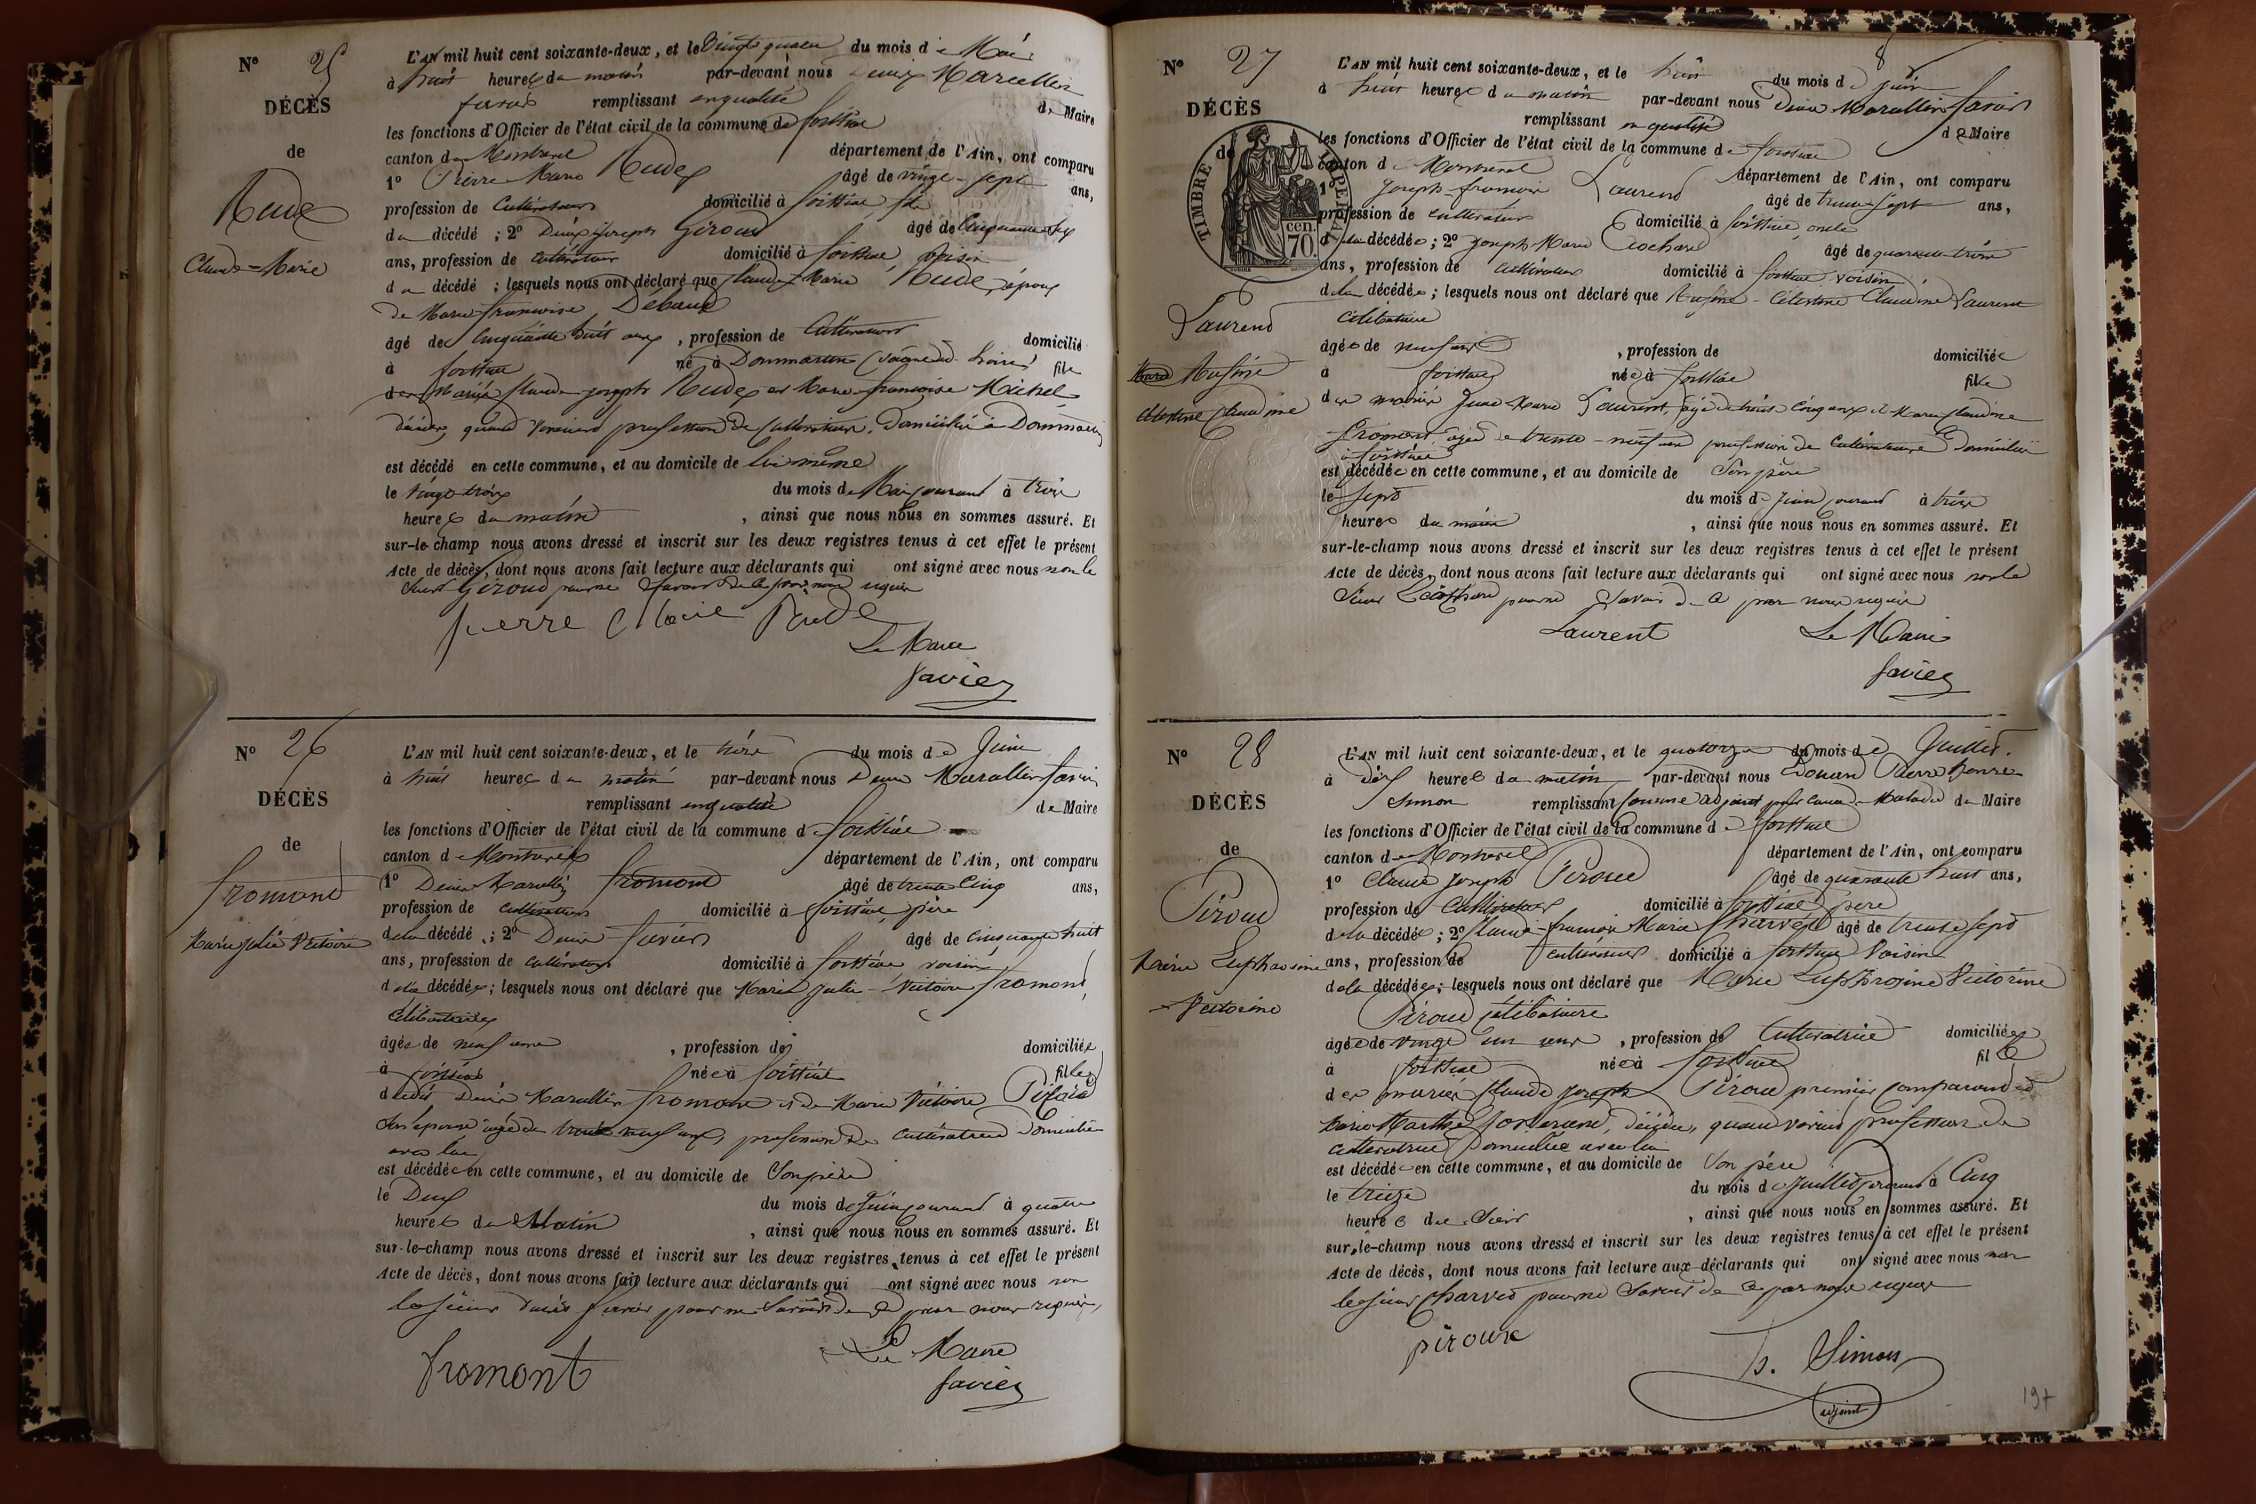 N° 25
DÉCÈS
de
Rude
Claude-Marie
L'AN mil huit cent soixante-deux, et le vingt quatre du mois de Mai
à huit heures du matin par-devant nous Denis Marcellin
favier remplissant en qualité de Maire
les fonctions d'Officier de l'état civil de la commune de
canton de Montrevel département de l'Ain, ont comparu
1° Pierre Marie Rude âgé de vingt-sept ans,
profession de Cultivateur domicilié à fils
du décédé ; 2° Denis Joseph Giroud âgé de Cinquante
ans, profession de Cultivateur domicilié à voisin
du décédé ; lesquels nous ont déclaré que Claude Marie Rude, époux
de Marie françoise
âgé de Cinquante huit ans, profession de Cultivateur domicilié
à né à Dommartin (Saône et Loire) fils
des mariés Claude-joseph Rude et Marie françoise Michel
décédés, quand vivaient profession de Cultivateurs, domiciliés à Dommartin
est décédé en cette commune, et au domicile de lui même
le vingt-trois du mois de Mai courant à trois
heures du matin, ainsi que nous nous en sommes assuré. Et
sur-le-champ nous avons dressé et inscrit sur les deux registres tenus à cet effet le présent
Acte de décès, dont nous avons fait lecture aux déclarants qui ont signé avec nous non le
sieur Giroud pour ne savoir de ce par nous requis
pierre Marie Rude
Le Maire
favier
N° 26
DÉCÈS
de
fromont
Marie julie Victoire
L'AN mil huit cent soixante-deux, et le trois du mois de Juin
à huit heures du matin par-devant nous Denis Marcellin favier
remplissant en qualité de Maire
les fonctions d'Officier de l'état civil de la commune de
canton de Montrevel département de l'Ain, ont comparu
1° Denis Marcellin fromont âgé de trente Cinq ans,
profession de cultivateur domicilié à père
de la décédée ; 2° Denis favier âgé de Cinquante huit
ans, profession de cultivateur domicilié à voisin
de la décédée ; lesquels nous ont déclaré que Marie Julie-Victoire fromont,
Célibataire
âgée de neuf ans, profession de domiciliée
à née à fille
dudit Denis Marcellin fromont et de Marie Victoire
son épouse âgée de trente neuf ans, profession de cultivatrice domiciliée
avec lui
est décédée en cette commune, et au domicile de Son père
le Deux du mois de Juin courant à quatre
heures du Matin, ainsi que nous nous en sommes assuré. Et
sur-le-champ nous avons dressé et inscrit sur les deux registres tenus à cet effet le présent
Acte de décès, dont nous avons fait lecture aux déclarants qui ont signé avec nous non
le sieur Denis favier pour ne savoir de ce par nous requis,
fromont
Le Maire
favier
N° 27
DÉCÈS
de
TIMBRE IMPERIAL
cen. 70.
Laurend
Rufine
Célestine Claudine
8
L'AN mil huit cent soixante-deux, et le huit du mois de juin
à huit heures du matin par-devant nous Denis Marcellin favier
remplissant en qualité de Maire
les fonctions d'Officier de l'état civil de la commune de
canton de Montrevel département de l'Ain, ont comparu
1° Joseph-françois Laurend âgé de trente-sept ans,
profession de cultivateur domicilié à oncle
de la décédée ; 2° Joseph-Marie Cochard âgé de quarante trois
ans, profession de cultivateur domicilié à voisin
de la décédée ; lesquels nous ont déclaré que Rufine-Célestine Claudine Laurent
célibataire
âgée de neuf ans, profession de domiciliée
à née à fille
des mariés Jean-Marie Laurent, âgé de trente cinq ans et Marie Claudine
fromont âgée de trente-neuf ans profession de cultivateurs domiciliés
est décédée en cette commune, et au domicile de Son père
le Sept du mois de Juin courant à trois
heures du matin, ainsi que nous nous en sommes assuré. Et
sur-le-champ nous avons dressé et inscrit sur les deux registres tenus à cet effet le présent
Acte de décès, dont nous avons fait lecture aux déclarants qui ont signé avec nous non le
Sieur Cochard pour ne Savoir de ce par nous requis
Laurent Le Maire
favier
N° 28
DÉCÈS
de
Piroud
Marie Euphrosine
Victorine
L'AN mil huit cent soixante-deux, et le quatorze du mois de Juillet.
à dix heures du matin par-devant nous Edouard Pierre
Simon remplissant comme adjoint pour cause de Maladie du Maire
les fonctions d'Officier de l'état civil de la commune de
canton de Montrevel département de l'Ain, ont comparu
1° Claude Joseph Piroud âgé de quarante huit ans,
profession de Cultivateur domicilié à père
de la décédée ; 2° Claude-françois Marie Charvet âgé de trente sept
ans, profession de cultivateur domicilié à Voisin
de la décédée ; lesquels nous ont déclaré que Marie Euphrosine Victorine
Piroud célibataire
âgée de vingt un ans, profession de Cultivatrice domiciliée
à née à fille
des mariés Claude Joseph Piroud premier comparant et
Marie Marthe décédée, quand vivait profession de
cultivatrice domiciliée avec lui
est décédée en cette commune, et au domicile de Son père
le treize du mois de Juillet courant à Cinq
heures du Soir, ainsi que nous nous en sommes assuré. Et
sur-le-champ nous avons dressé et inscrit sur les deux registres tenus à cet effet le présent
Acte de décès, dont nous avons fait lecture aux déclarants qui ont signé avec nous non
le sieur Charvet pour ne Savoir de ce par nous requis
piroux
Simon
adjoint
197